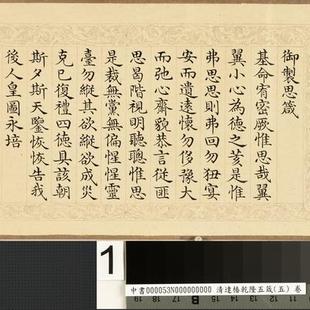 御製思箴
基命宥密厥惟思哉翼
翼小心為德之荄是惟
弗思思則弗回勿狃宴
安而遺遠懷勿侈豫大
而弛心齋貌恭言從匪
思曷階視明聽聰惟思
是裁無黨無偏惺惺靈
臺勿縱其欲縱欲成災
克己復禮四德具該朝
斯夕斯天鑒恢恢告我
後人皇圖永培
1
中書000053N000000000 清達椿乾隆五箴(五) 卷